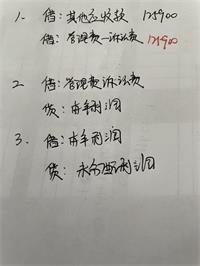 1. 借：其他应收款 12900
借：管理费—诉讼费 12900
2. 借：管理费诉讼费
贷：本年利润
3. 借：本年利润
贷：未分配利润